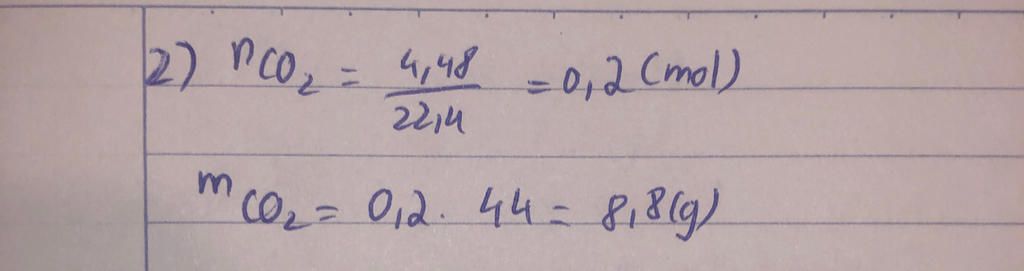 2) nCO₂ = 4,48 / 22,4 = 0,2 (mol)
mCO₂ = 0,2 . 44 = 8,8 (g)